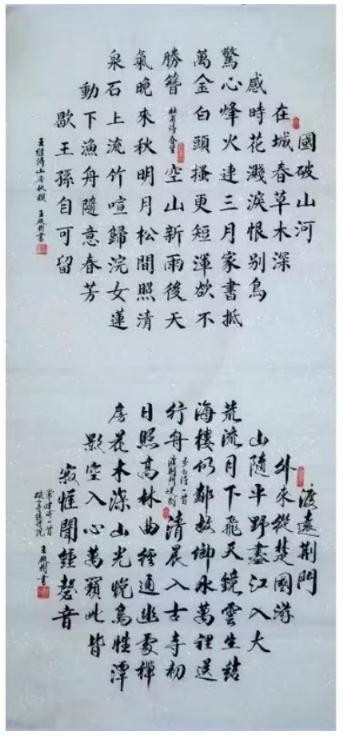 國破山河
在城春草木深
感時花濺淚恨别鳥
驚心烽火連三月家書抵
萬金白頭搔更短渾欲不
勝簪 杜甫诗春望 空山新雨後天
氣晚來秋明月松間照清
泉石上流竹喧歸浣女蓮
動下漁舟隨意春芳
歇王孫自可留
王維诗山居秋暝 王 書
渡遠荊門
外來從楚國游
山隨平野盡江入大
荒流月下飛天鏡雲生結
海樓仍鄰故鄉水萬裡送
行舟 李白诗一首 渡荆門送别 清晨入古寺初
日照高林曲徑通幽處禪
房花木深山光悦鳥性潭
影空入心萬籟此皆
寂惟聞鍾磬音
常建诗一首
破山寺后禅院 王 書